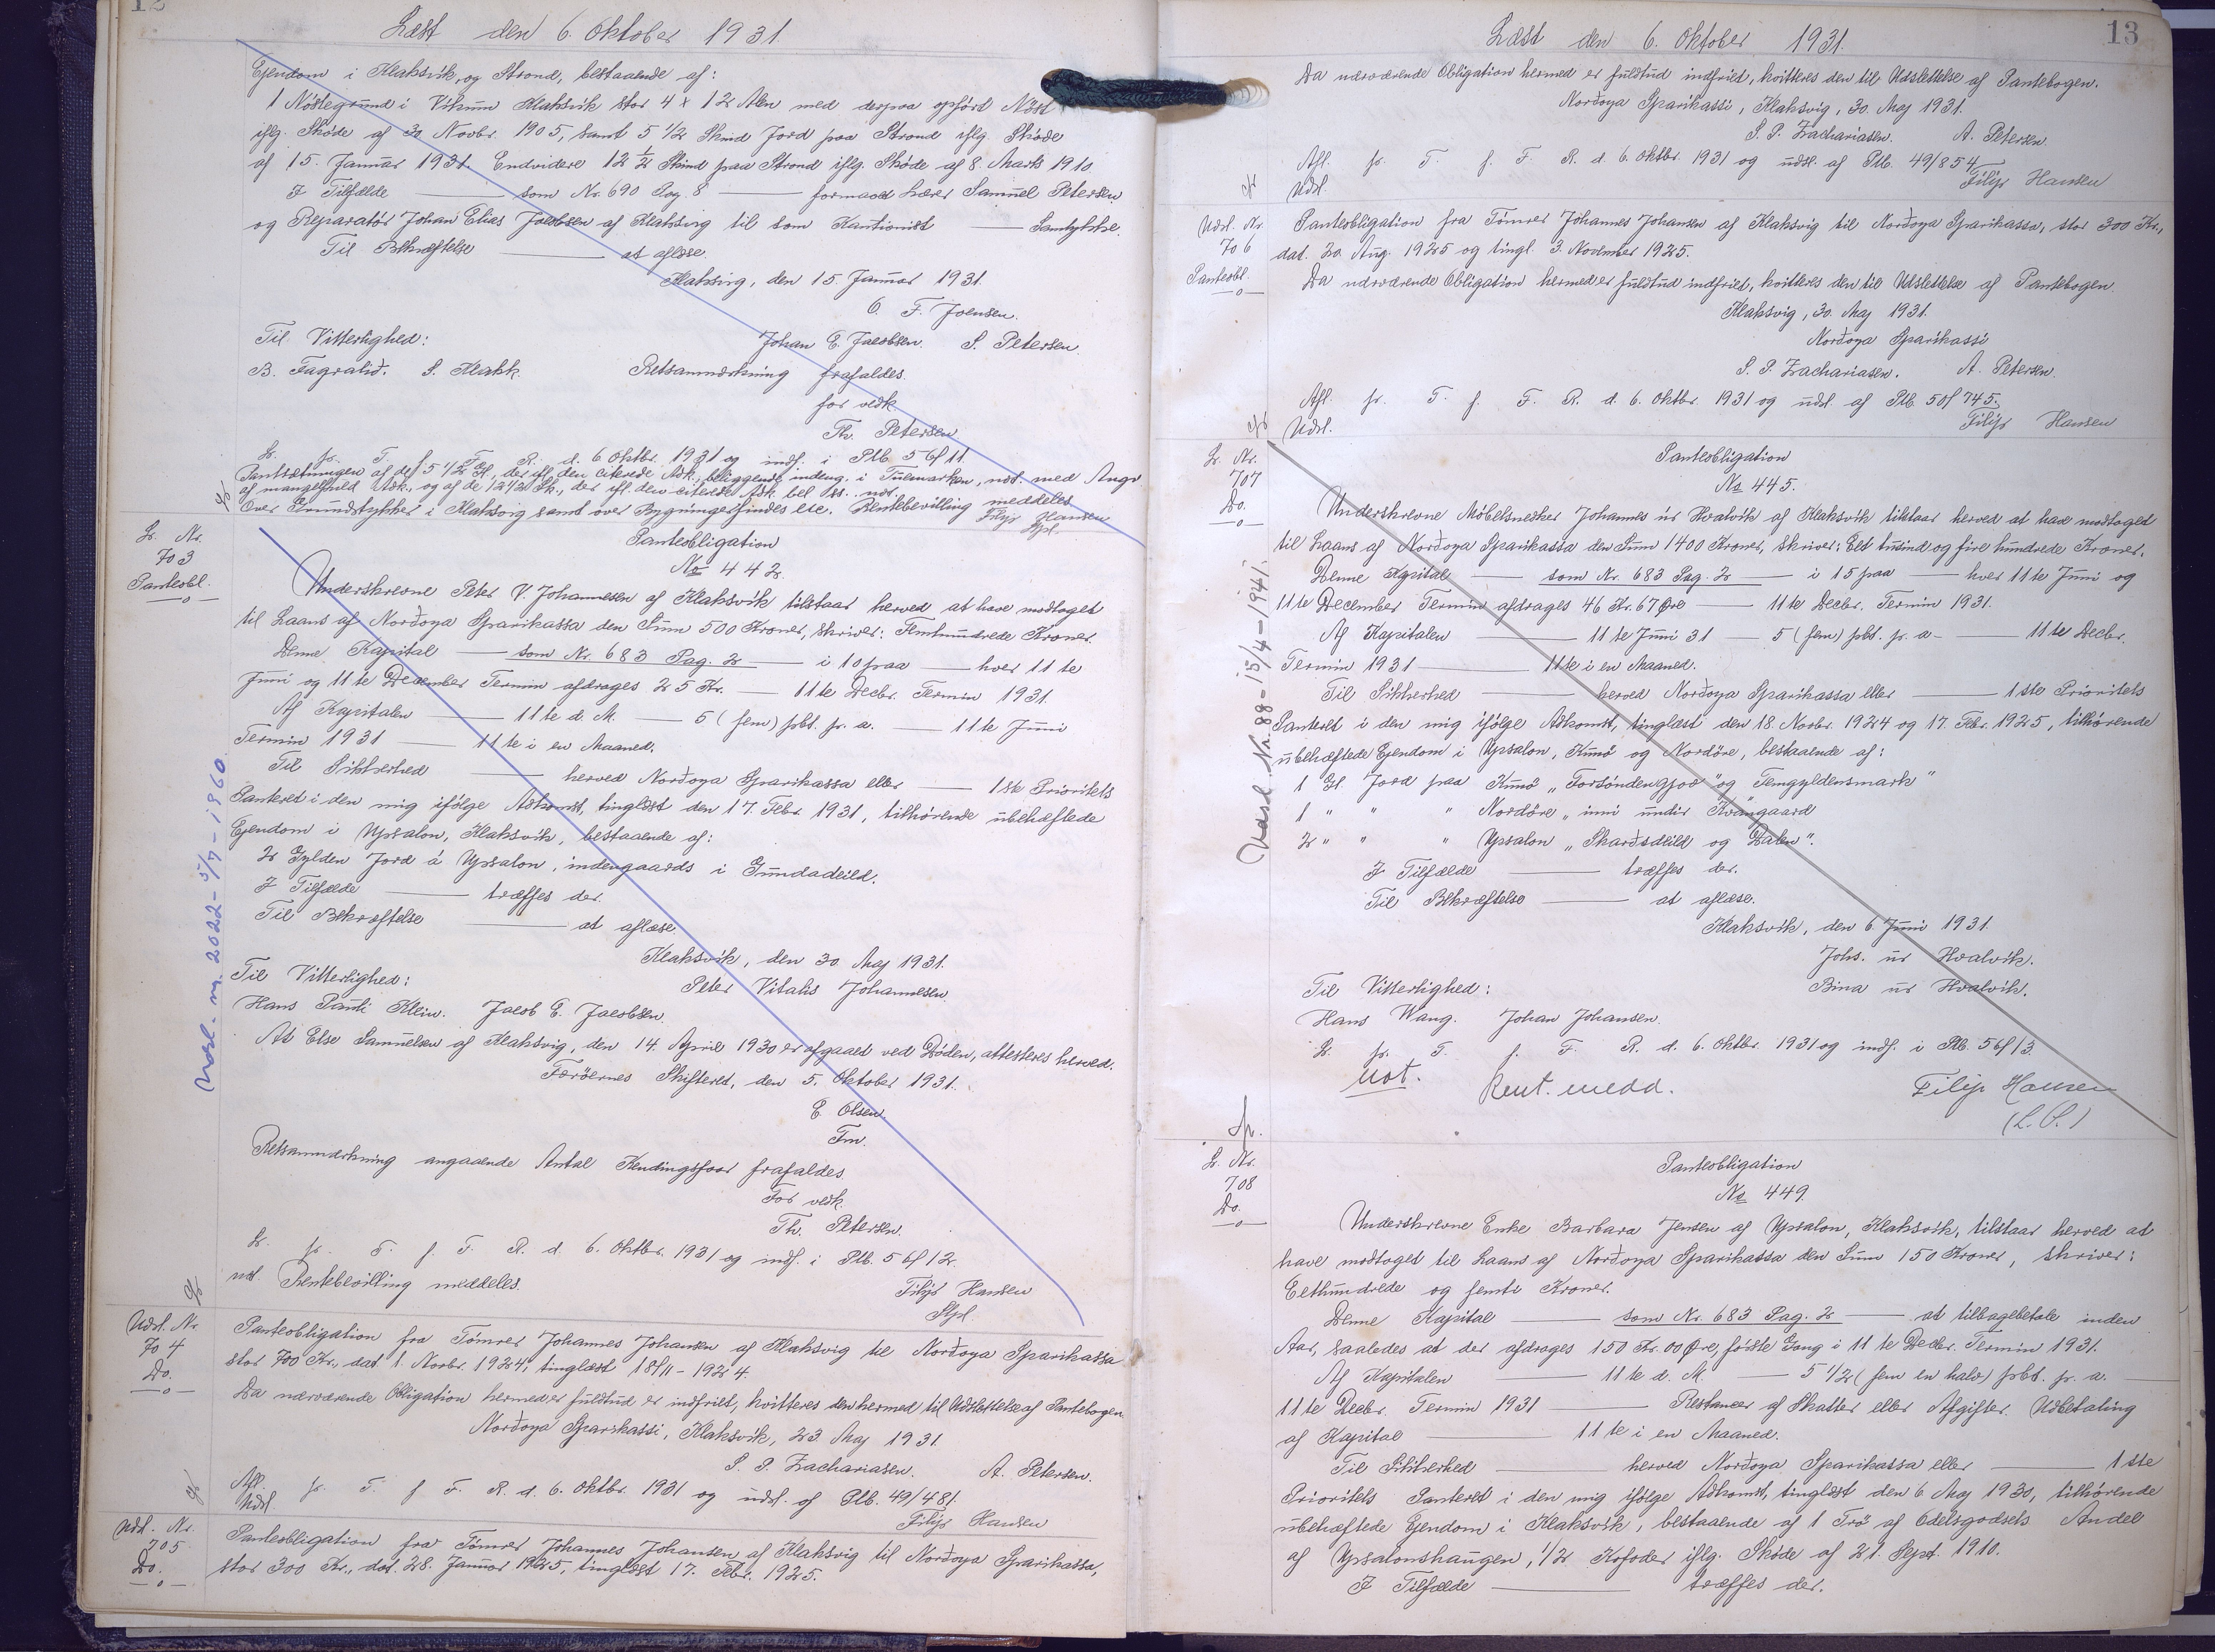 12
Læst den 6. Oktober 1931.
Ejendom i Klaksvik, og Strond, bestaaende af:
1 Nöstegrund i Vikum Klaksvik stor 4 x 12 Alen med derpaa opført Nöst
iflg. Skøde af 30 Novbr. 1905, samt 5 1/2 Skind Jord paa Strond iflg. Skøde
af 15. Januar 1931. Endvidere 12 1/2 Skind paa Strond iflg. Skøde af 8 Marts 1910.
I Tilfælde — som Nr. 690 Pag. 8 — formaaed Lærer Samuel Petersen
og Reparatør Johan Elias Jacobsen af Klaksvig til som Kautionist — Samtykke.
Til Bekræftelse — at aflæse.
Klaksvig, den 15. Januar 1931.
O. F. Joensen.
Til Vitterlighed: Johan E. Jacobsen. S. Petersen.
B. Fagralid. S. Klakk. Retsanmærkning frafaldes.
for vedk.
Th. Petersen
L. pr. T. f. F. R. d. 6 Oktbr. 1931 og indf. i Ptb. 56f 11.
Pantsætningen af de 5 1/2 Gl. der ifl. den citerede Adk., beliggende indeng. i Tuemarken, not. med Angv
af mangelfuld Adk., og af de 12 1/2 Sk., der ifl. den citerede Adk bel
over Grundstykker i Klaksvig samt over Bygninger findes etc. Rentebevilling meddeles
Filip Hansen
Spl.
L. Nr.
703
Panteobl.
—o—
Panteobligation
No 442.
Underskrevne Peter V. Johannesen af Klaksvik tilstaar herved at have modtaget
til Laans af Norðoya Sparikassa den Sum 500 Kroner, skriver: Femhundrede Kroner
Denne Kapital — som Nr. 683 Pag. 2 — i 10 paa — hver 11 te
Juni og 11 te December Termin afdrages 25 Kr. — 11te Decbr. Termin 1931.
Af Kapitalen — 11 te d. M. — 5 (fem) pct. pr. a. — 11 te Juni
Termin 1931 — 11 te i en Maaned.
Til Sikkerhed — herved Norðoya Sparikassa eller — 1ste Prioritets
Panteret i den mig ifølge Adkomst, tinglæst den 17. Febr. 1931, tilhørende ubehæftede
Ejendom i Ypsalon, Klaksvik, bestaaende af:
2 Gylden Jord á Ypsalon, indengaards i Gundadeild.
I Tilfælde — træffes der.
Til Bekræftelse — at aflæse.
Klaksvik, den 30. Maj 1931.
Til Vitterlighed: Peter Vitalis Johannesen
Hans Pauli Klein. Jacob E. Jacobsen.
At Else Samuelsen af Klaksvig, den 14. April 1930 er afgaaet ved Døden, attesteres herved.
Færøernes Skifteret, den 5. Oktober 1931.
E. Olsen.
Fm.
Retsanmærkning angaaende Antal Kendingsfaar frafaldes
For vedk.
Th. Petersen.
L. pr. T. f. F. R. d. 6. Oktbr. 1931 og indf. i Ptb. 56f 12.
not. Rentebevilling meddeles.
Filip Hansen
Spl.
Udsl. nr. 2022 - 5/7 - 1960.
Udsl. Nr.
704
Do.
—o—
Panteobligation fra Tömrer Johannes Johansen af Klaksvig til Norðoya Sparikassa
stor 700 Kr., dat. 1. Novbr. 1924, tinglæst 18/11 - 1924.
Da nærværende Obligation hermed er fuldtud er indfriet, kvitteres den hermed til Udslettelse af Pantebogen.
Norðoya Sparikassi, Klaksvik, 23. Maj 1931.
S. P. Zachariasen. A. Petersen.
Afl. pr. T. f F. R. d. 6. Oktbr. 1931 og udsl. af Ptb. 49/481.
Udsl. Filip Hansen
Udsl. Nr.
705.
Do.
—o—
Panteobligation fra Tömrer Johannes Johansen af Klaksvig til Norðoya Sparikassa,
stor 300 Kr., dat. 28. Januar 1925, tinglæst 17. Febr. 1925.
13
Læst den 6. Oktober 1931.
Da nærværende Obligation hermed er fuldtud indfriet, kvitteres den til Udslettelse af Pantebogen.
Norðoya Sparikassi, Klaksvig, 30. Maj 1931.
S. P. Zachariasen. A. Petersen.
Afl. pr. T. f. F. R. d. 6. Oktbr. 1931 og udsl. af Ptb. 49/854
Udsl. Filip Hansen
Udsl. Nr.
706
Panteobl.
—o—
Panteobligation fra Tömrer Johannes Johansen af Klaksvig til Norðoya Sparikassa, stor 300 Kr.,
dat. 20. Aug. 1925 og tingl. 3. November 1925.
Da nærværende Obligation hermed er fuldtud indfriet, kvitteres den til Udslettelse af Pantebogen.
Klaksvig, 30. Maj 1931.
Norðoya Sparikassi
S. P. Zachariasen. A. Petersen.
Afl. pr. T. f. F. R. d. 6. Oktbr. 1931 og udsl. af Ptb 50f 745.
Udsl. Filip Hansen
L. Nr.
707
Do.
—o—
Panteobligation
No 445.
Underskrevne Møbelsnedker Johannes úr Hvalvik af Klaksvik tilstaar herved at have modtaget
til Laans af Norðoya Sparikassa den Sum 1400 Kroner, skriver: Eet tusind og fire hundrede Kroner.
Denne Kapital — som Nr. 683 Pag. 2 — i 15 paa — hver 11te Juni og
11te December Termin afdrages 46 Kr. 67 Øre — 11te Decbr. Termin 1931.
Af Kapitalen — 11te Juni 31 — 5 (fem) pct. pr. a — 11te Decbr.
Termin 1931 — 11te i en Maaned.
Til Sikkerhed — herved Norðoya Sparikassa eller — 1ste Prioritets
Panteret i den mig ifølge Adkomst, tinglæst den 18. Novbr. 1924 og 17. Febr. 1925, tilhørende
ubehæftede Ejendom i Ypsalon, Kunö og Nordöre, bestaaende af:
1 Gl. Jord paa Kunö „Forsöndengjov" og Femgyldensmark"
1 " " " Nordöre „inni undir Kvangaard
2 " " " Ypsalon „Skarðsdeild og Dalen".
I Tilfælde — træffes der.
Til Bekræftelse — at aflæse.
Klaksvik, den 6. Juni 1931.
Johs. úr Hvalvik.
Til Vitterlighed: Bina úr Hvalvik.
Hans Wang. Johan Johansen.
L. pr. T. f. F. R. d. 6. Oktbr. 1931 og indf. i Ptb. 56f 13.
not. Rent. medd. Filip Hansen
(L.S.)
Udsl. Nr. 88 - 15/4 - 1941.
L. Nr.
708
Do.
—o—
Panteobligation
No 449.
Underskrevne Enke Barbara Jensen af Ypsalon, Klaksvik, tilstaar herved at
have modtaget til Laans af Norðoya Sparikassa den Sum 150 Kroner, skriver:
Eethundrede og femti Kroner.
Denne Kapital — som Nr. 683 Pag. 2 — at tilbagebetale inden
Aar, saaledes at der afdrages 150 Kr. 00 Øre, første Gang i 11 te Decbr. Termin 1931.
Af Kapitalen — 11 te d. M. — 5 1/2 (fem en halv) pct. pr. a. —
11te Decbr. Termin 1931 — Restancer af Skatter eller Afgifter. Udbetaling
af Kapital — 11 te i en Maaned.
Til Sikkerhed — herved Norðoya Sparikassa eller — 1 ste
Prioritets Panteret i den mig ifølge Adkomst, tinglæst den 6 Maj 1930, tilhørende
ubehæftede Ejendom i Klaksvik, bestaaende af 1 Trö af Odelsgodsets Andel
af Ypsalonshaugen, 1/2 Kofoder iflg. Skøde af 21. Sept. 1910.
I Tilfælde — træffes der.